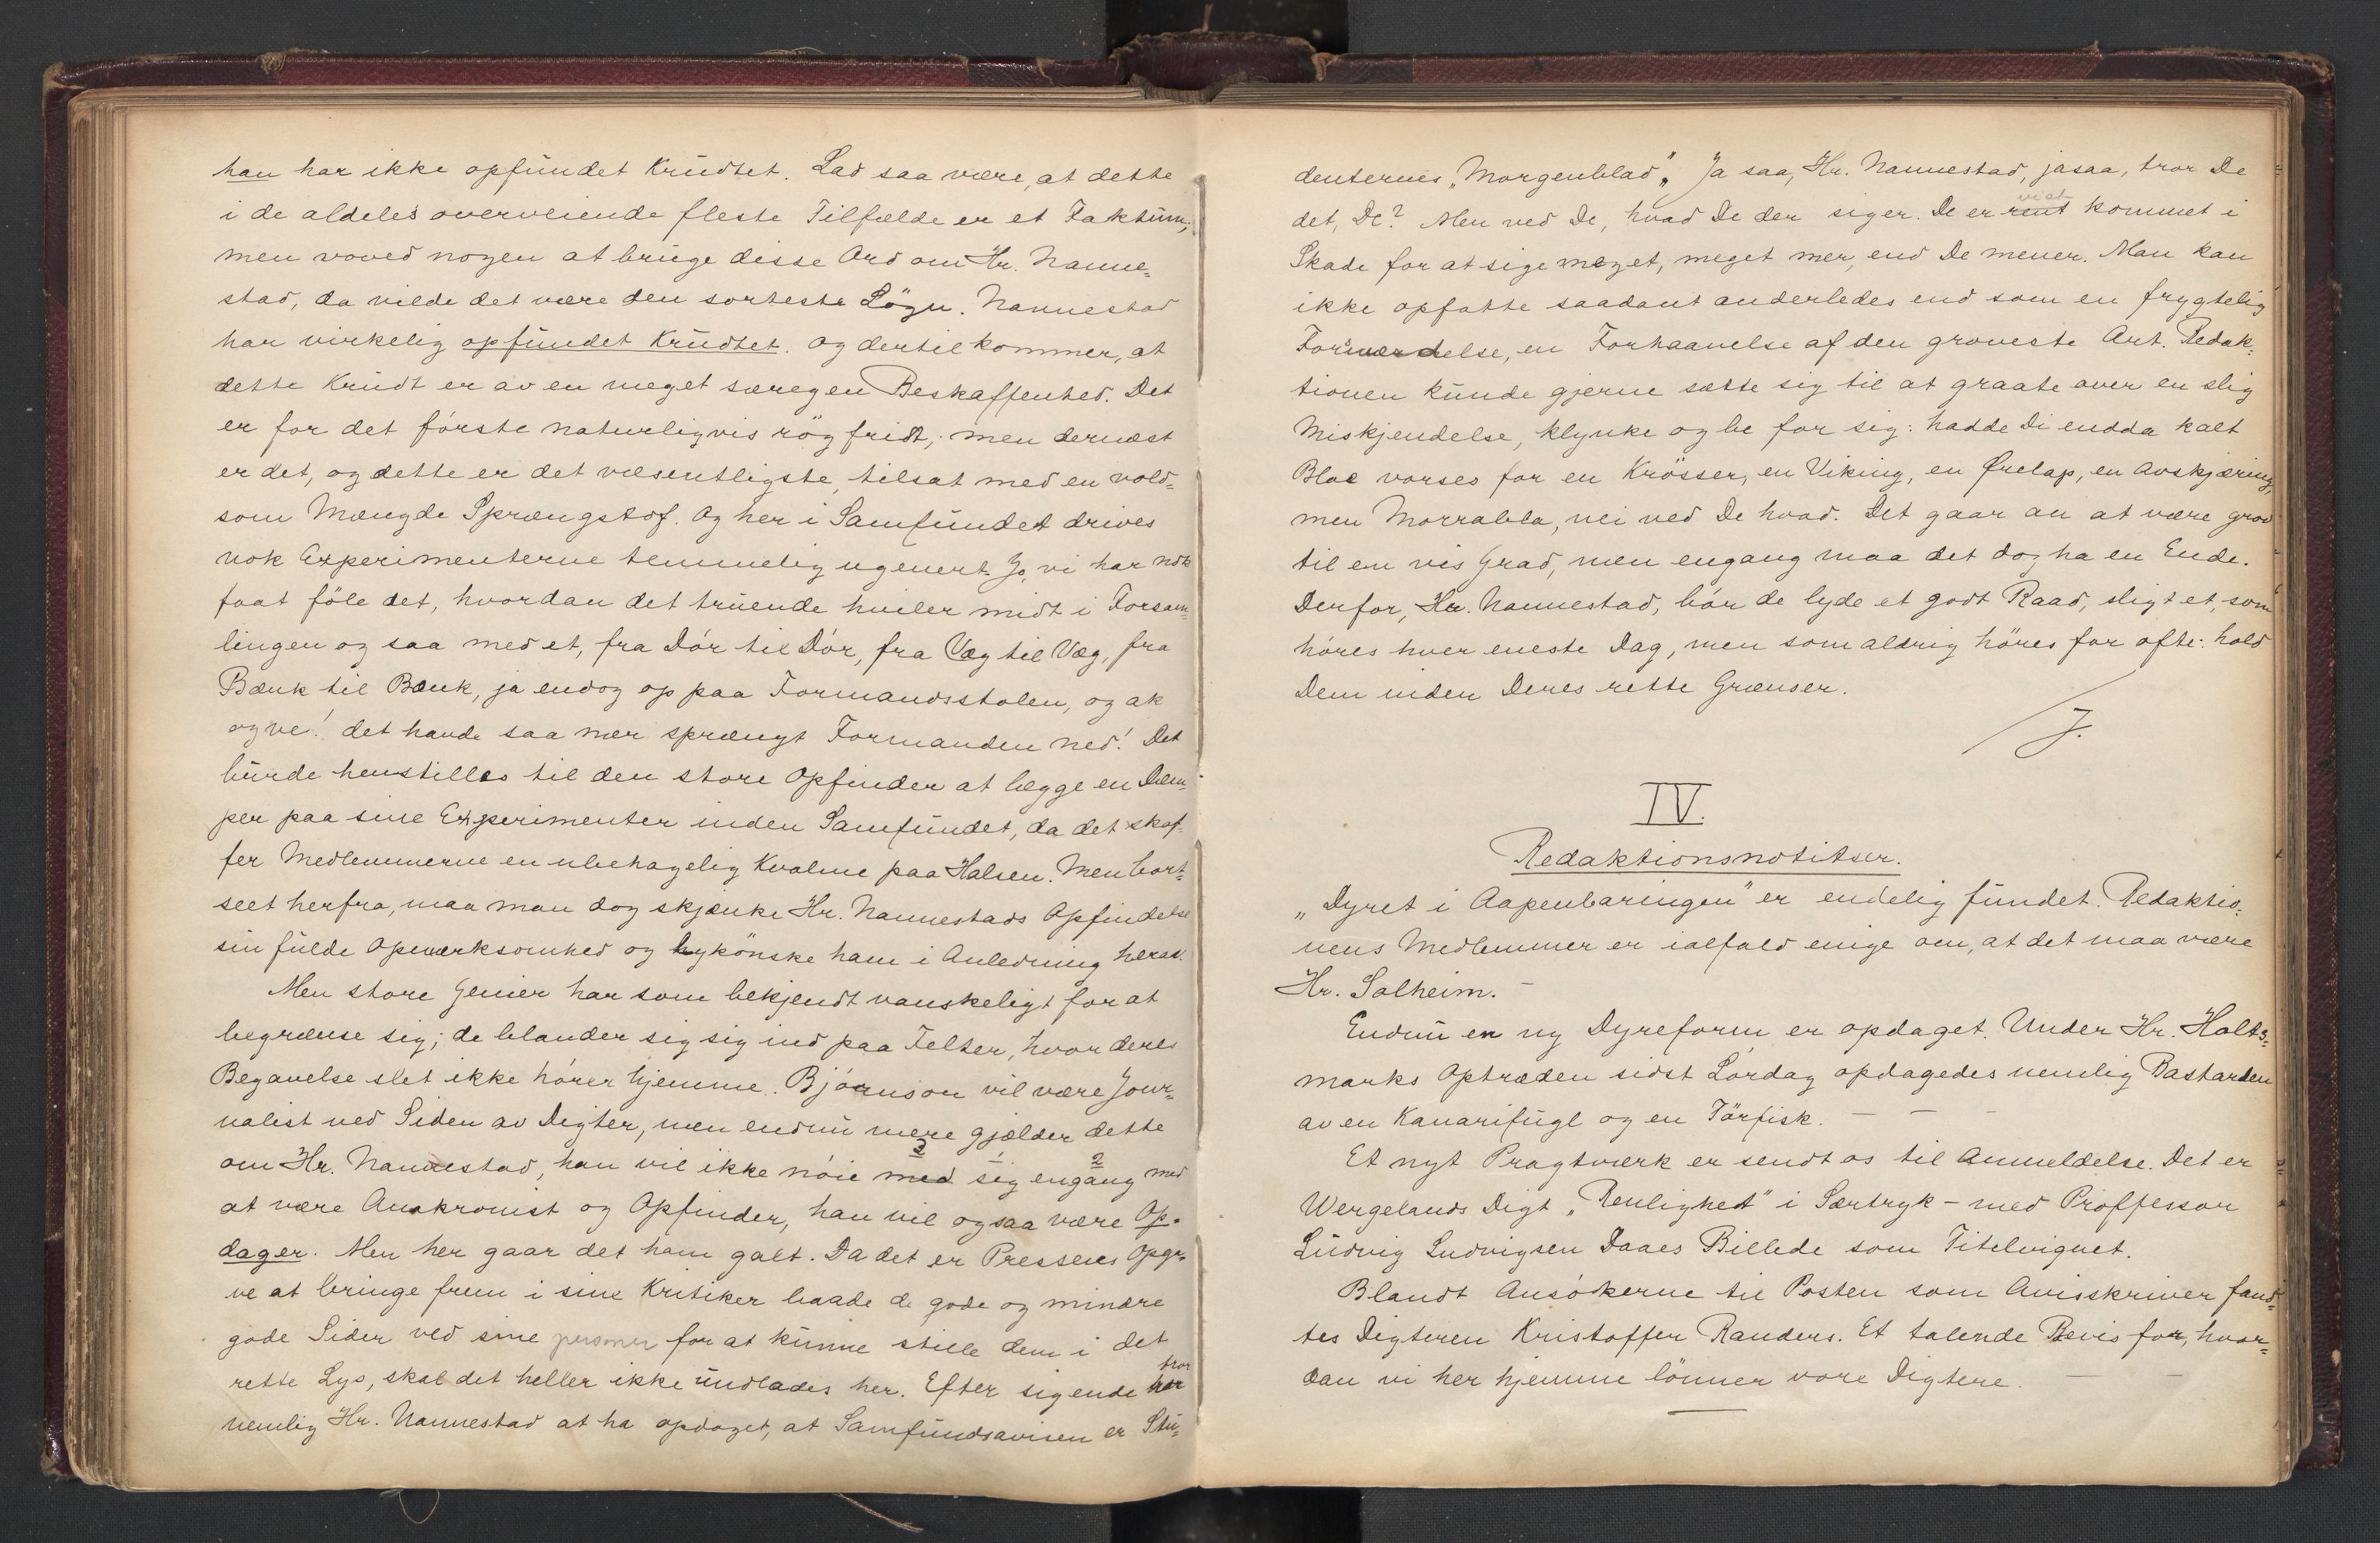 han har ikke opfundet Krudtet. Lad saa være, at dette
i de aldeles overveiende fleste Tilfælde er et Faktum,
men voved nogen at bruge disse Ord om Hr. Nanne-
stad, da vilde det være den sorteste Løgn. Nannestad
har virkelig opfundet Krudtet. Og dertil kommer, at
dette Krudt er av en meget særegen Beskaffenhed. Det
er for det første naturligvis røgfridt; men dernæst
er det, og dette er det væsentligste, tilsat med en vold-
som Mængde Sprængstof. Og her i Samfundet drives
nok Experimenterne temmelig ugenert. Jo, vi har nok
faat føle det, hvordan det truende hviler midt i Forsam-
lingen og saa med et, fra Dør til Dør, fra Væg til Væg, fra
Bænk til Bænk, ja endog op paa Formandsstolen, og ak
og ve! det havde saa nær sprængt Formanden ned! Det
burde henstilles til den store Opfinder at lægge en Dæm-
per paa sine Experimenter inden Samfundet, da det skaf-
fer Medlemmerne en ubehagelig Kvalme paa Halsen. Men bort-
seet herfra, maa man dog skjænke Hr. Nannestads Opfindelse
sin fulde Opmærksomhed og lykønske ham i Anledning herav.
Men store Genier har som bekjendt vanskeligt for at
begrænse sig; de blander sig sig ind paa Felter, hvor deres
Begavelse slet ikke hører hjemme. Bjørnson vil være Jour-
nalist ved Siden av Digter, men endnu mere gjælder dette
om Hr. Nannestad, han vil ikke nøie med sig engang med
at være Anakronist og Opfinder, han vil ogsaa være Op-
dager. Men her gaar det ham galt. Da det er Pressens Opga-
ve at bringe frem i sine Kritiker baade de gode og mindre
gode Sider ved sine personer for at kunne stille dem i det
rette Lys, skal det heller ikke undlades her. Efter sigende tror
nemlig Hr. Nannestad at ha opdaget, at Samfundsavisen er Stu-
denternes „Morgenblad“. Ja saa, Hr. Nannestad, jasaa, tror De
det, De? Men ved De, hvad De der siger. De er rent kommet i
Skade for at sige meget, meget mer, end De mener. Man kan
ikke opfatte saadant anderledes end som en frygtelig
Fornærmelse, en Forhaanelse af den groveste Art. Redak-
tionen kunde gjerne sætte sig til at graate over en slig
Miskjendelse, klynke og be for sig: hadde Di endda kalt
Blae vorses for en Krøsser, en Viking, en Ørelap, en Avskjæring,
men Morrabla, nei ved De hvad. Det gaar an at være grov
til en vis Grad, men engang maa det dog ha en Ende.
Derfor, Hr. Nannestad, bør de lyde et godt Raad, sligt et, som
høres hver eneste Dag, men som aldrig høres for ofte: hold
Dem inden Deres rette Grænser.
J.
IV.
Redaktionsnotitser.
„Dyret i Aapenbaringen“ er endelig fundet. Redaktio-
nens Medlemmer er ialfald enige om, at det maa være
Hr. Solheim. –
Endnu en ny Dyreform er opdaget. Under Hr. Holts-
marks Optræden sidst Lørdag opdagedes nemlig Bastarden
av en Kanarifugl og en Tørfisk. – – –
Et nyt Pragtværk er sendt os til Anmeldelse. Det er
Wergelands Digt „Renlighed“ i Særtryk – med Proffessor
Ludvig Ludvigsen Daaes Billede som Titelvignet.
Blandt Ansøkerne til Posten som Avisskriver fand-
tes Digteren Kristoffer Randers. Et talende Bevis for, hvor-
dan vi her hjemme lønner vore Digtere. – –